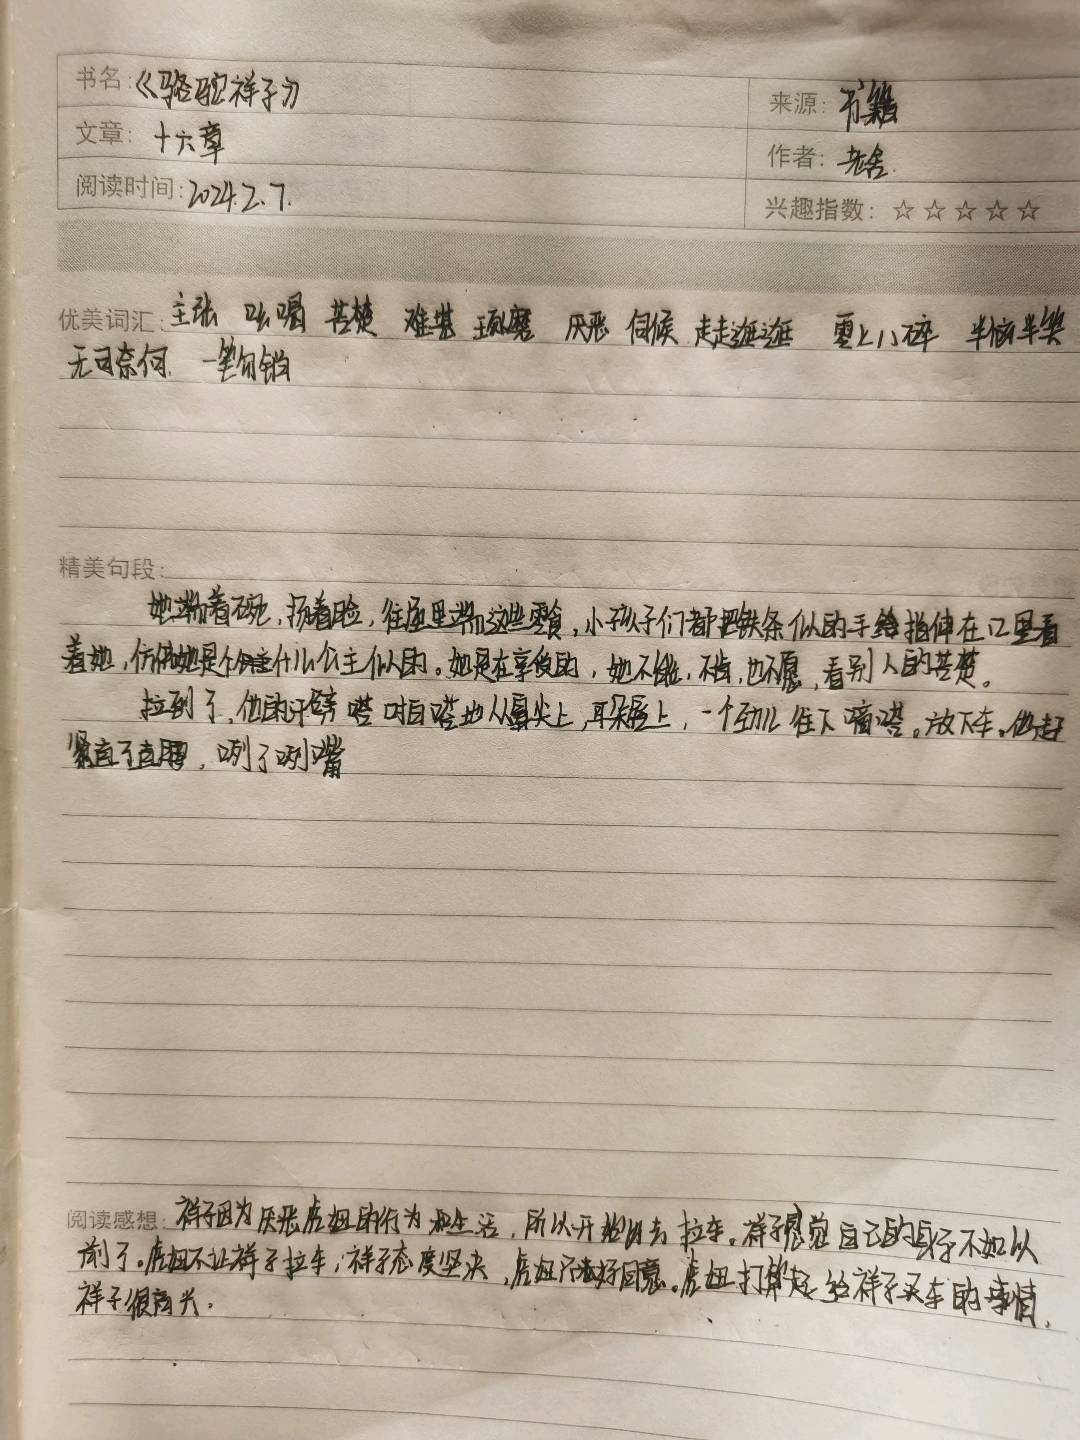 书名：《骆驼祥子》
来源：书籍
文章：十六章
作者：老舍
阅读时间：2024.2.7.
兴趣指数：☆☆☆☆☆
优美词汇：主张 吆喝 苦楚 难堪 琢磨 厌恶 伺候 走走逛逛 零七八碎 半恼半笑
无可奈何 一笔勾销
精美句段：
她端着碗，扬着脸，往屋里端这些零食，小孩子们都把铁条似的手指伸在口里看
着她，仿佛她是个什么公主似的。她是在享受的，她不能，不肯，也不愿，看别人的苦楚。
拉到了，他的汗嗒嗒地从鼻尖上，耳朵上，一个劲儿往下滴嗒。放下车。他赶
紧直了直腰，咧了咧嘴
阅读感想：祥子因为厌恶虎妞的行为和生活，所以开始出去拉车。祥子感觉自己的身子不如以
前了。虎妞不让祥子拉车，祥子态度坚决，虎妞只好同意。虎妞打算起给祥子买车的事情，
祥子很高兴.